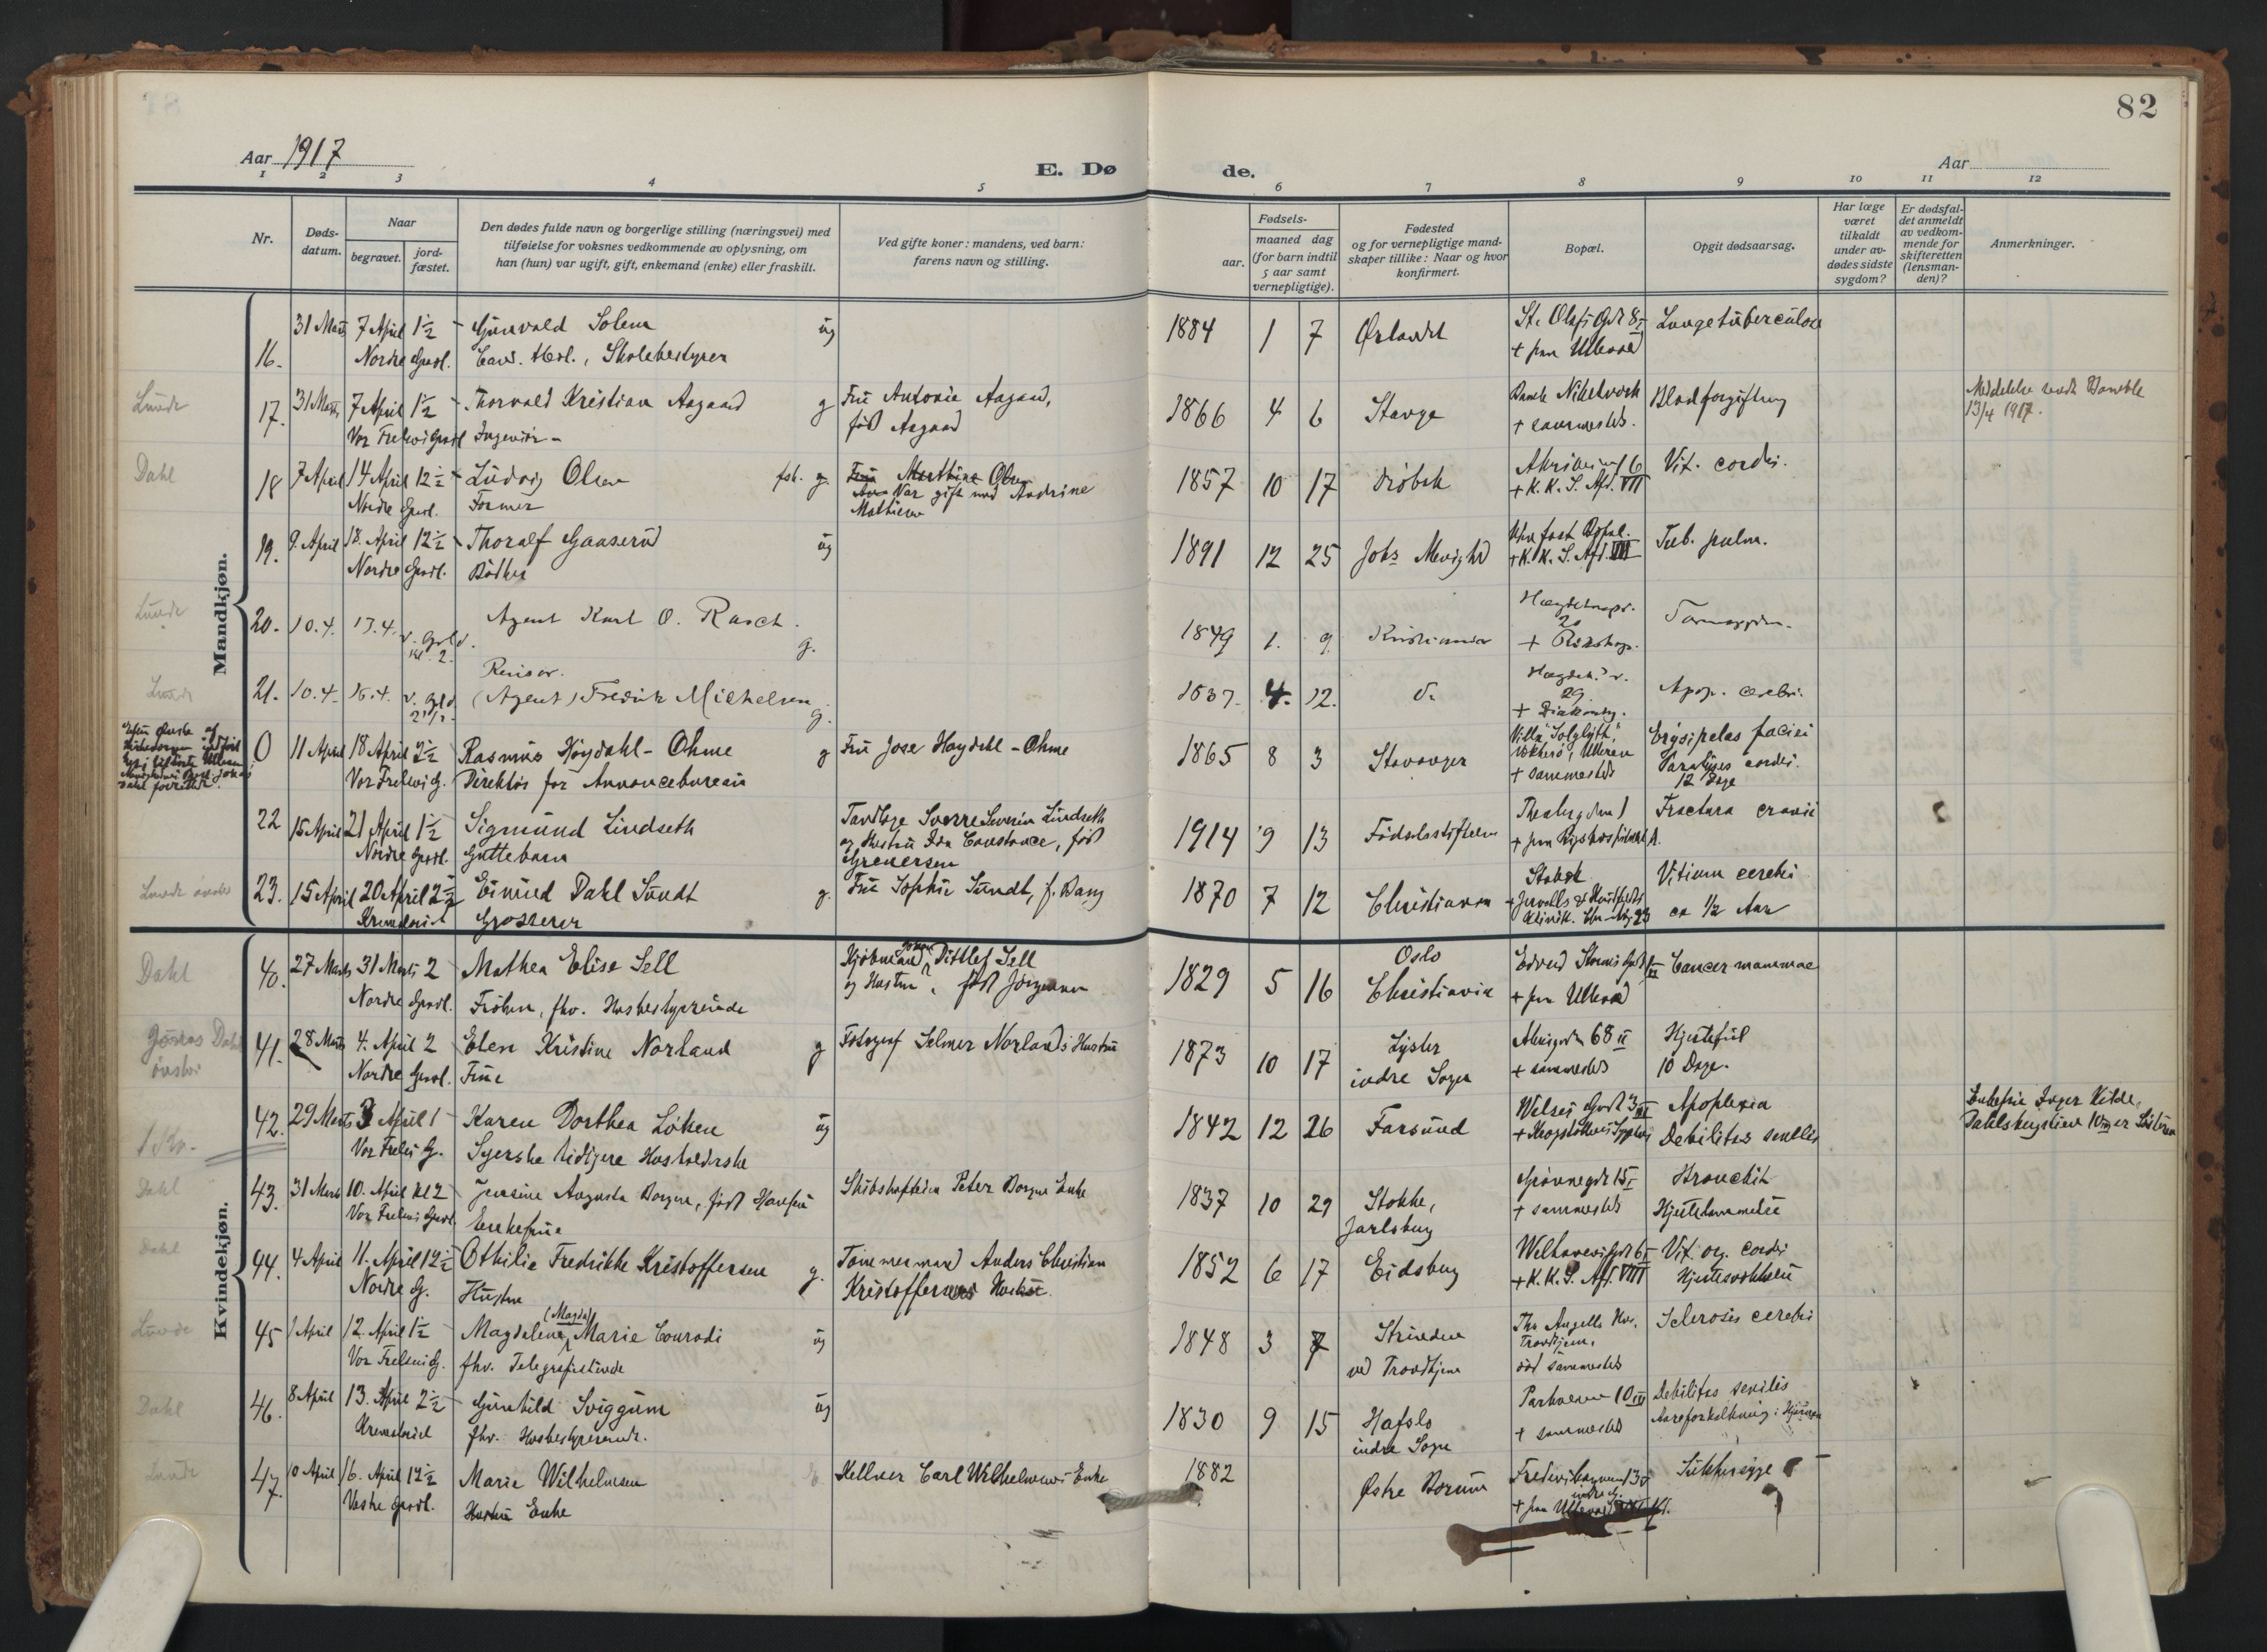 82
Aar 1917
E. Dø
de.
Aar
1 2 3 4 5 6 7 8 9 10 11 12
Nr.
Døds-
datum.
Naar
begravet.
jord-
fæstet.
Den dødes fulde navn og borgerlige stilling (næringsvei) med
tilføielse for voksnes vedkommende av oplysning, om
han (hun) var ugift, gift, enkemand (enke) eller fraskilt.
Ved gifte koner: mandens, ved barn:
farens navn og stilling.
Fødsels-
aar.
maaned dag
(for barn indtil
5 aar samt
vernepligtige).
Fødested
og for vernepligtige mand-
skaper tillike: Naar og hvor
konfirmert.
Bopæl.
Opgit dødsaarsag.
Har læge
været
tilkaldt
under av-
dødes sidste
sygdom?
Er dødsfal-
det anmeldt
av vedkom-
mende for
skifteretten
(lensman-
den)?
Anmerkninger.
Mandkjøn.
16. 31 Marts 7 April 1½ Gunvald Solem ug 1884 1 7 Ørlandet St. Olafs Gd. 8 Lungetuberculose
Nordre Gravl. Cand. theol., Skolebestyrer + paa Ullevaal
Lunde 17. 31 Marts 7 April 1½ Thorvald Kristian Aagaard g Fru Antonie Aagaard, 1866 4 6 Stange Nikelverk Blodforgiftning Meddelelse sendt Bamble
Vor Frelsers Gravl. Ingeniør født Aagaard + sammesteds. 13/4 1917.
Dahl 18 7 April 14 April 12½ Ludvig Olsen fsk. g. Fru Marthine Olsen 1857 10 17 Drøbak Akersveien 16 Vit. cordis.
Nordre Gravl. Former Var gift med Andrine + K. K. S. Afd. VII
Mathisen
19. 9. April 18. April 12½ Thoralf Gaaserud ug 1891 12 25 Uden fast Bopæl. Tub. pulm.
Nordre Gravl. Bødker + K. K. S. Afd. VIII
Lunde 20. 10.4. 17.4. v. Grl. Agent Karl O. Rasch. g. 1849 1. 9. Kristiania
kl. 2. + Rikshosp.
Lunde 21. 10.4. 16.4. v. Grl. Revisor.
(Agent) Fredrik Michelsen g. 1837. 4. 12. Apop. cerebri.
29
+ Diakonhj.
0 11 April 18 April 2½ Rasmus Høydahl-Ohme g Fru Jose Høydahl-Ohme 1865 8 3 Stavanger Villa "Solglytt", Erysipelas faciei
Vor Frelsers G. Direktør for Annoncebureau Ullern + sammesteds Paralyses cordis.
12 Dage
22 15 April 21 April 1½ Sigmund Lindseth Tandlæge Sverre Severin Lindseth 1914 9 13 Fødselsstiftelsen Fractura cranii
Nordre Gravl. Guttebarn og Hustru Ida Constance, født + paa Rigshospitalet
Grenersen
Lunde 23. 15 April 20 April 2½ Eivind Dahl Sundt g. Fru Sophie Sundt, f. Bang 1870 7 12 Christiania Stabæk Vitium cerebri
Grosserer Klinik. ca ½ Aar
Kvindekjøn.
Dahl 40. 27 Marts 31 Marts 2 Mathea Elise Sell Kjøbmand Johan Ditlef Sell 1829 5 16 Oslo Edvard Storms Gd. Cancer mammae
Nordre Gravl. Frøken, fhv. Husbestyrerinde og Hustru, født Jørgensen Christiania + paa Ullevaal
Dahl 41. 28 Marts 4. April 2 Elen Kristine Norland g Fotograf Selmer Norlands Hustru 1873 10 17 Lyster 68 II Hjertefeil
Nordre Gravl. Frue indre Sogn + sammesteds 10 Dage.
42. 29 Marts 3 April 1 Karen Dorthea Løken ug 1842 12 26 Farsund Welses Gade 3 III Apoplexia Enkefru Inger Kilde,
Vor Frelsers G. Syerske tidligere Husholderske Debilitas senilis Dahlsbergstien 10 III er Søsteren
Dahl 43. 31 Marts 10. April kl 2 Jensine Augusta Borgen, født Hansen Skibskaptein Peter Borgens Enke 1837 10 29 Stokke, Grønnegd. 15 I Bronchit
Vor Frelsers Gravl. Enkefrue Jarlsberg + sammesteds Hjertelammelse
Dahl 44. 4 April 11. April 12½ Othilie Fredrikke Kristoffersen g. Tømmermand Anders Christian 1852 6 17 Eidsberg Welhavens Gd. 6 Vit. org. cordis
Nordre G. Hustru Kristoffersens Hustru. + K. K. S. Afd. VIII Hjertesvækkelse
Lunde 45 1 April 12. April 1½ Magdalena (Magda) Marie Conradi ug 1848 3 7 Strinden Th. Angells Hus, Sclerosis cerebri
Vor Frelsers G. fhv. Telegrafistinde ved Trondhjem Trondhjem,
død sammesteds
Dahl 46. 8 April 13. April 2½ Gunhild Sviggum ug 1830 9 15 Hafslo Parkveien 10 III Debilitas senilis
fhv. Husbestyrerinde. indre Sogn + sammesteds Aareforkalkning i Hjernen
Lunde 47. 10 April 16. April 12½ Marie Wilhelmsen E Kellner Carl Wilhelmsens Enke 1882 Østre Bærum Sukkersyge
Vestre Gravl. Hustru Enke + paa Ullevaal